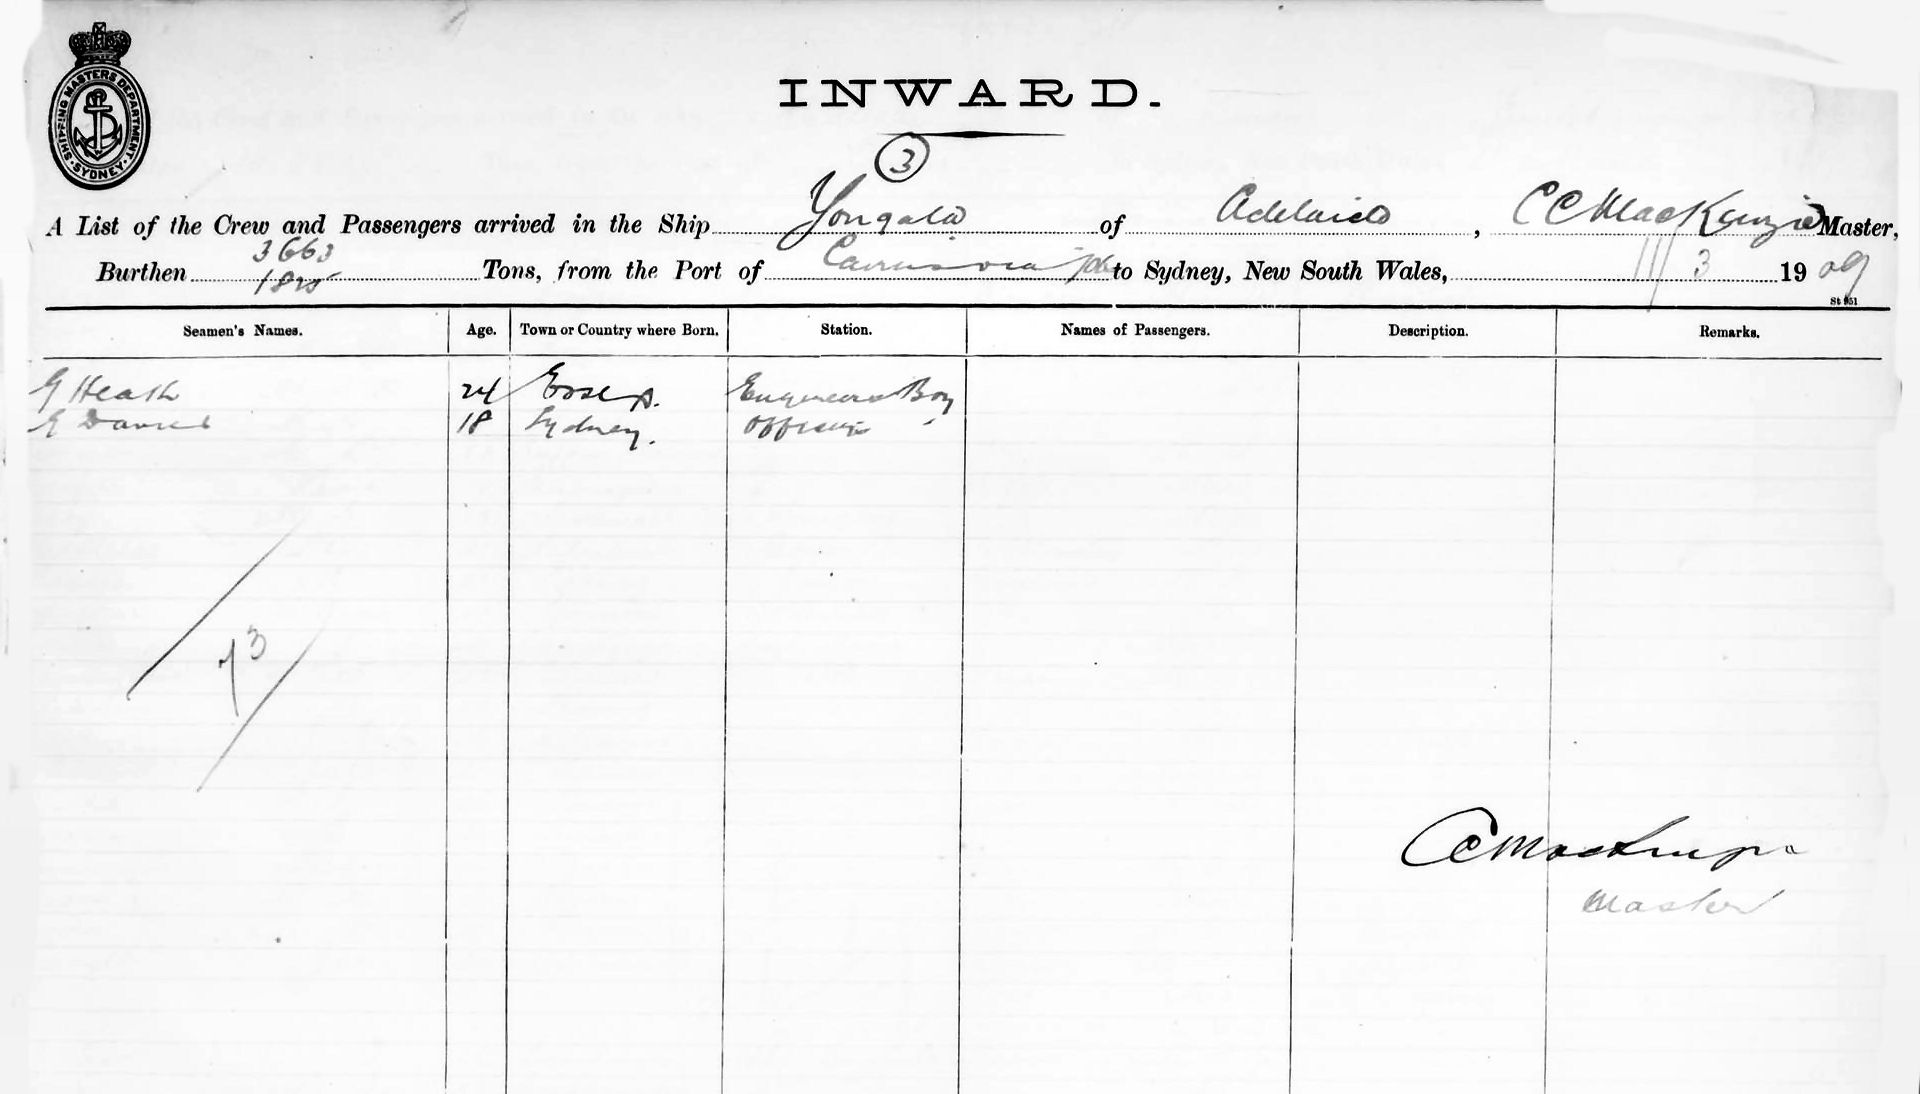 SHIPPING MASTERS DEPARTMENT
SYDNEY
INWARD.
3
A List of the Crew and Passengers arrived in the Ship Yongala of Adelaide, C C MacKenzie Master,
Burthen 3663 Tons, from the Port of to Sydney, New South Wales, 3 1909
1825
Seamen's Names. Age. Town or Country where Born. Station. Names of Passengers. Description. Remarks.
G Heath 24 Essex. Engineers Boy
E Davies 18 Sydney. Officers
73
CC MacKenzie
Master